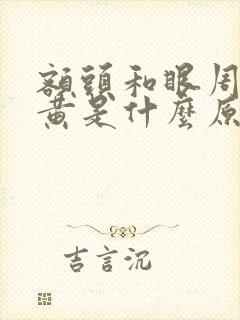 額頭和眼周
黃是什麼原
吉言沉